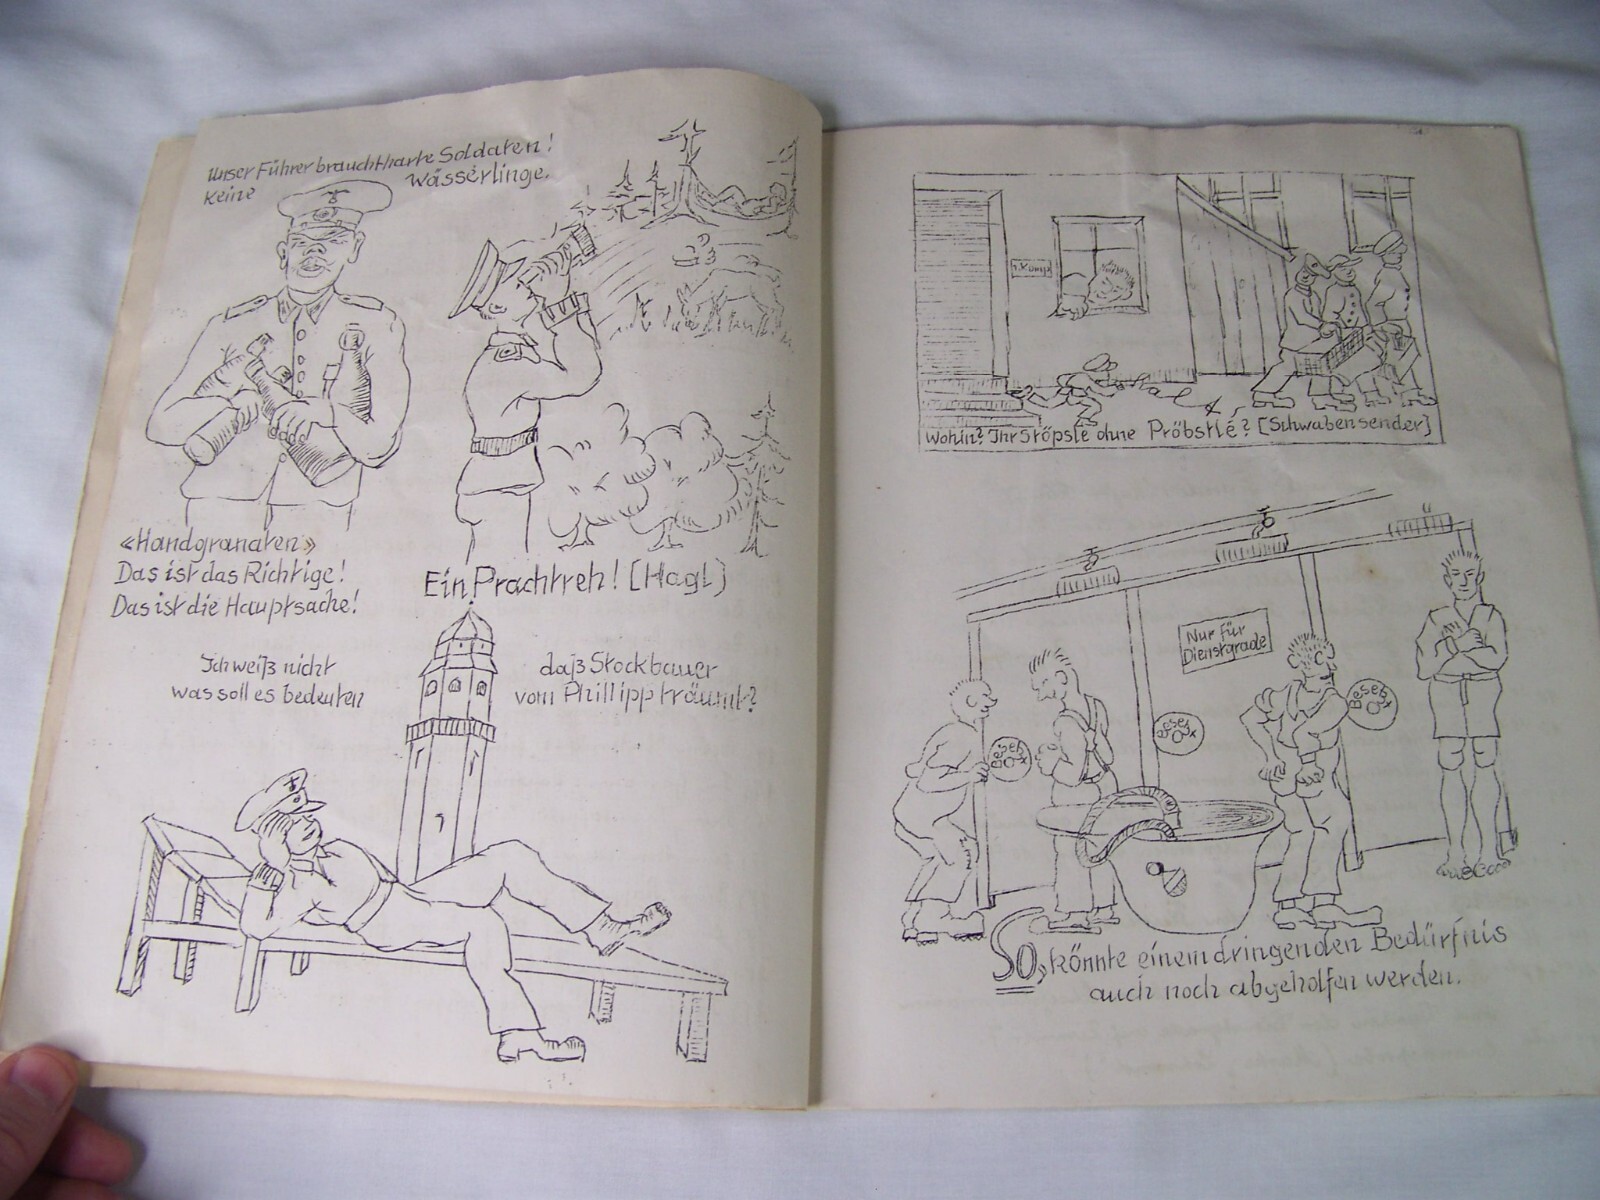 Unser Führer braucht harte Soldaten!
Keine Wässerlinge.
«Handgranaten»
Das ist das Richtige!
Das ist die Hauptsache!
Ein Prachtreh! [Hagl]
Ich weiß nicht
was soll es bedeuten
daß Stockbauer
vom Phillipp träumt?
1. Komp
Halt
Wohin? Ihr Stöpsle ohne Pröbstle? [Schwabensender]
Nur für
Dienstgrade
Besetzt
Besetzt
Besetzt
So, könnte einem dringenden Bedürfnis
auch noch abgeholfen werden.